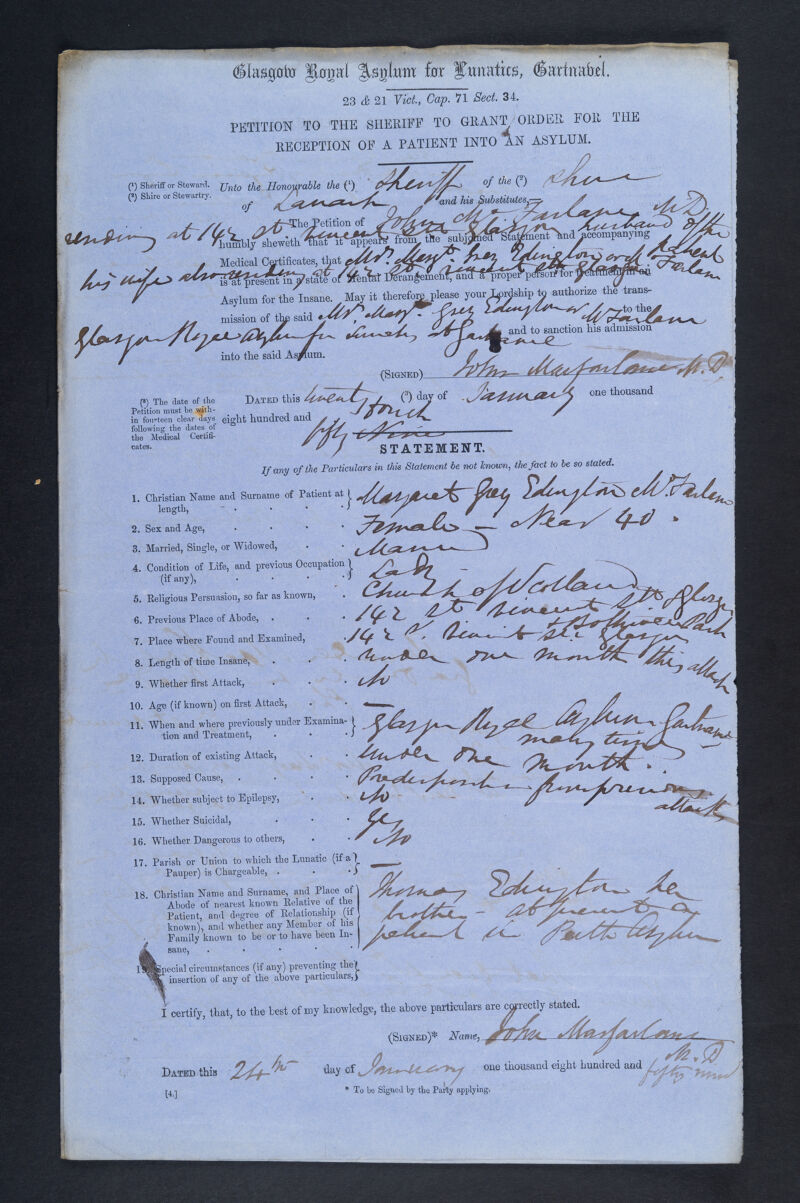 Glasgow Royal Asylum for Lunatics, Gartnavel.
23 & 21 Vict., Cap. 71 Sect. 34.
PETITION TO THE SHERIFF TO GRANT ORDER FOR THE
RECEPTION OF A PATIENT INTO AN ASYLUM.
(1) Sheriff or Steward.
(2) Shire or Stewartry.
Unto the Honourable the (1) Sheriff of the (2) Shire
of Lanark and his Substitutes,
The Petition of John McFarlane M.D
residing at 142 St. Vincent Street Glasgow husband of the patient
humbly sheweth that it appears from the subjoined Statement and accompanying
Medical Certificates, that Mrs. Margt. Grey Edington or McFarlane
his wife also residing at 142 St Vincent Street Glasgow
is at present in a state of Mental Derangement, and a proper person for treatment in an
Asylum for the Insane. May it therefore please your Lordship to authorize the trans-
mission of the said Mrs. Margt. Grey Edington or McFarlane to the
Glasgow Royal Asylum for Lunatics at Gartnavel and to sanction his admission
into the said Asylum.
(SIGNED) John Macfarlane M.D.
(3) The date of the
Petition must be with-
in fourteen clear days
following the dates of
the Medical Certifi-
cates.
DATED this twenty fourth (3) day of January one thousand
eight hundred and fifty Nine
STATEMENT.
If any of the Particulars in this Statement be not known, the fact to be so stated.
1. Christian Name and Surname of Patient at length, Margaret Grey Edington McFarlane
2. Sex and Age, Female – Near 40.
3. Married, Single, or Widowed, Married
4. Condition of Life, and previous Occupation (if any), Lady
5. Religious Persuasion, so far as known, Church of Scotland
6. Previous Place of Abode, 142 St Vincent Stt Glasgow & Bothwell Park
7. Place where Found and Examined, 142 St. Vincent Str Glasgow
8. Length of time Insane, under one month this attack
9. Whether first Attack, No
10. Age (if known) on first Attack, —
11. When and where previously under Examina-tion and Treatment, Glasgow Royal Asylum Gartnavel many times
12. Duration of existing Attack, under one month.
13. Supposed Cause, Predisposition from previous attacks
14. Whether subject to Epilepsy, No
15. Whether Suicidal, Yes
16. Whether Dangerous to others, No
17. Parish or Union to which the Lunatic (if a Pauper) is Chargeable, —
18. Christian Name and Surname, and Place of
Abode of nearest known Relative of the
Patient, and degree of Relationship (if
known), and whether any Member of his
Family known to be or to have been In-
sane,
Thomas Edington her
brother – at present a
patient in Perth Asylum
19. Special circumstances (if any) preventing the
insertion of any of the above particulars,
I certify, that, to the best of my knowledge, the above particulars are correctly stated.
(SIGNED)* Name, John Macfarlane M.D
DATED this 24th day of January one thousand eight hundred and fifty nine
[4.]
* To be Signed by the Party applying.